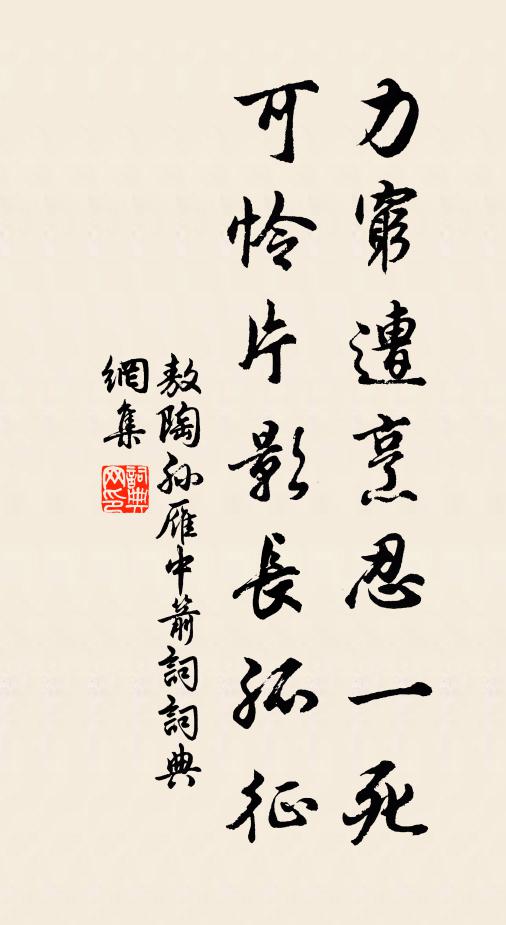 力窮遭烹忍一死
可怜片影長孤征
敖陶孙雁中箭詞詞典
網集
詞典
网印